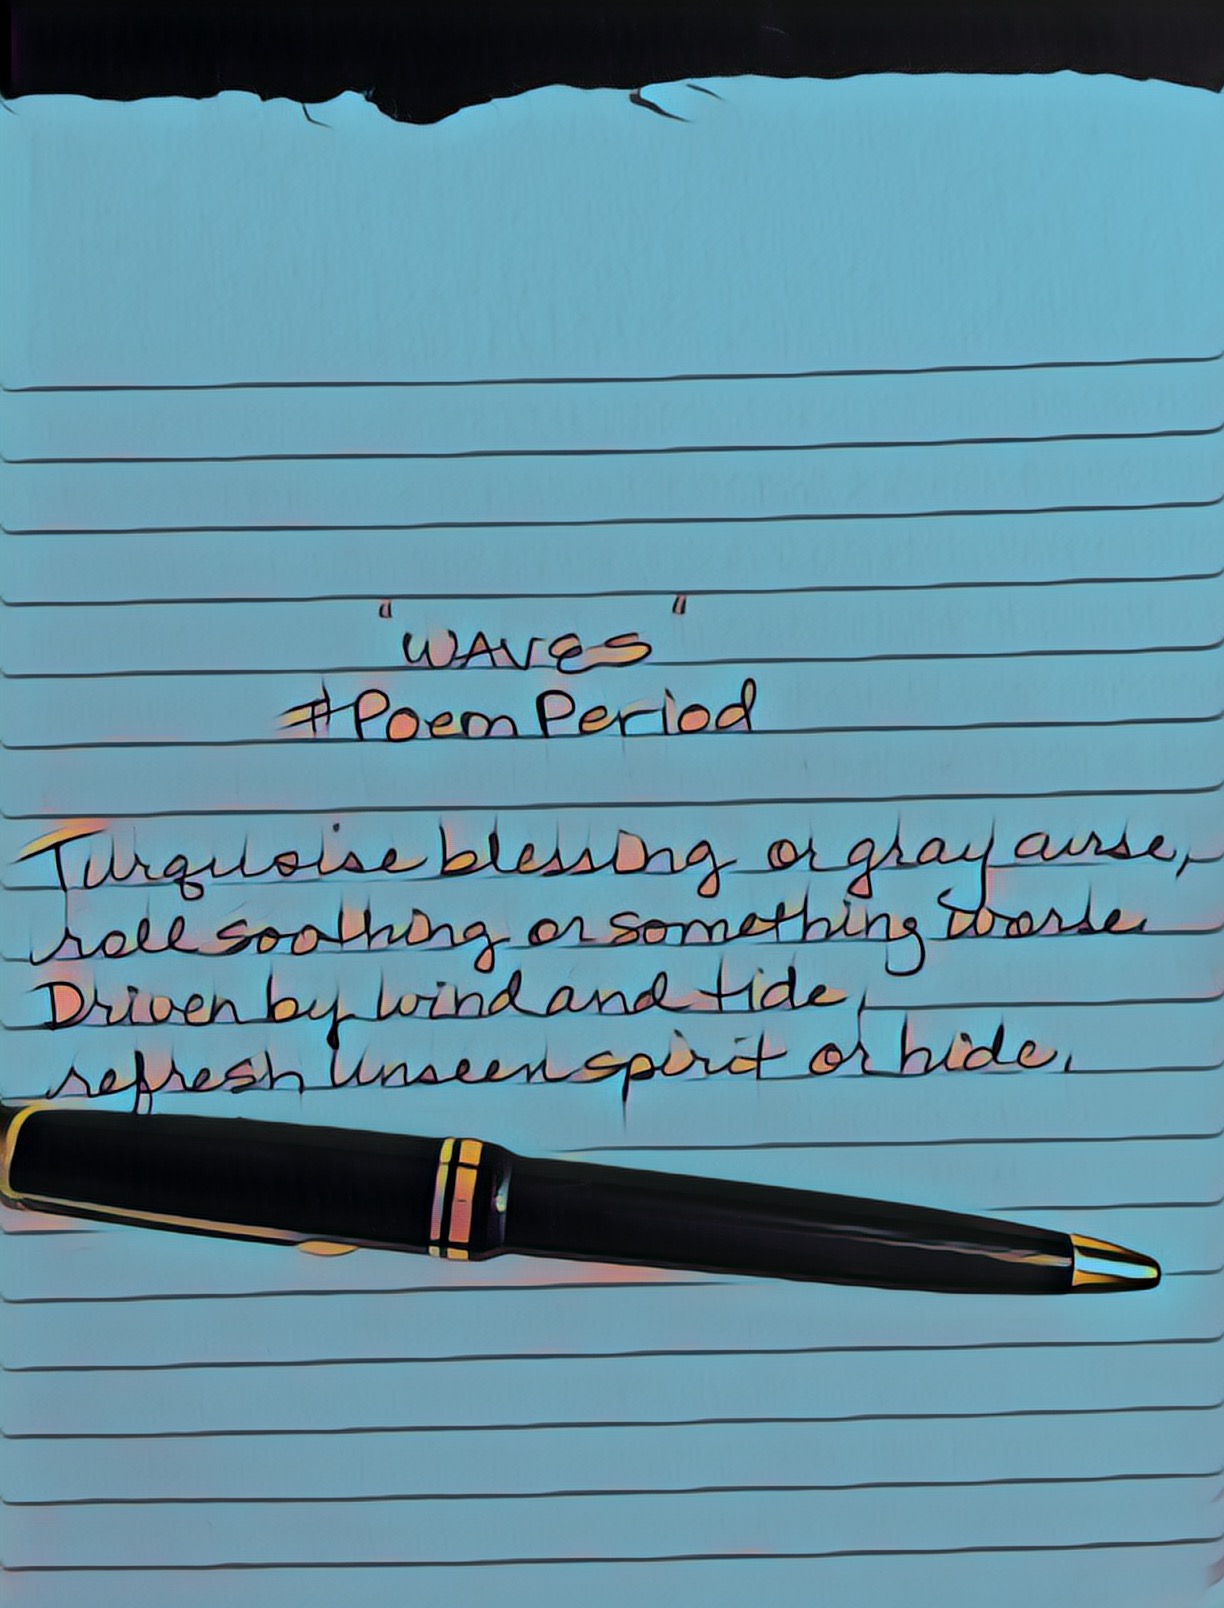 "WAVES"
#PoemPeriod
Turquoise blessing or gray curse,
roll soothing or something worse.
Driven by wind and tide,
refresh unseen spirit or hide.